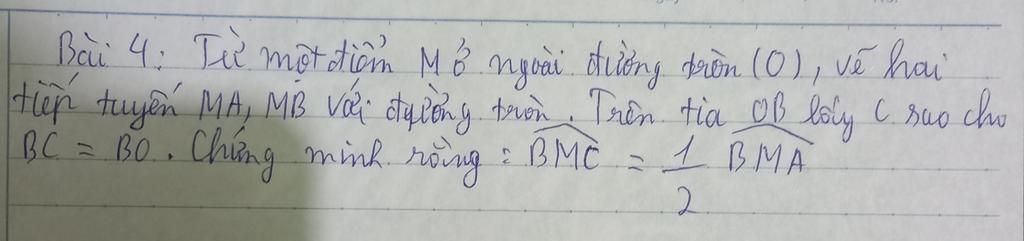 Bài 4: Từ một điểm M ở ngoài đường tròn (O), vẽ hai
tiếp tuyến MA, MB với đường tròn. Trên tia OB lấy C sao cho
BC = BO. Chứng minh rằng: \widehat{BMC} = \frac{1}{2} \widehat{BMA}